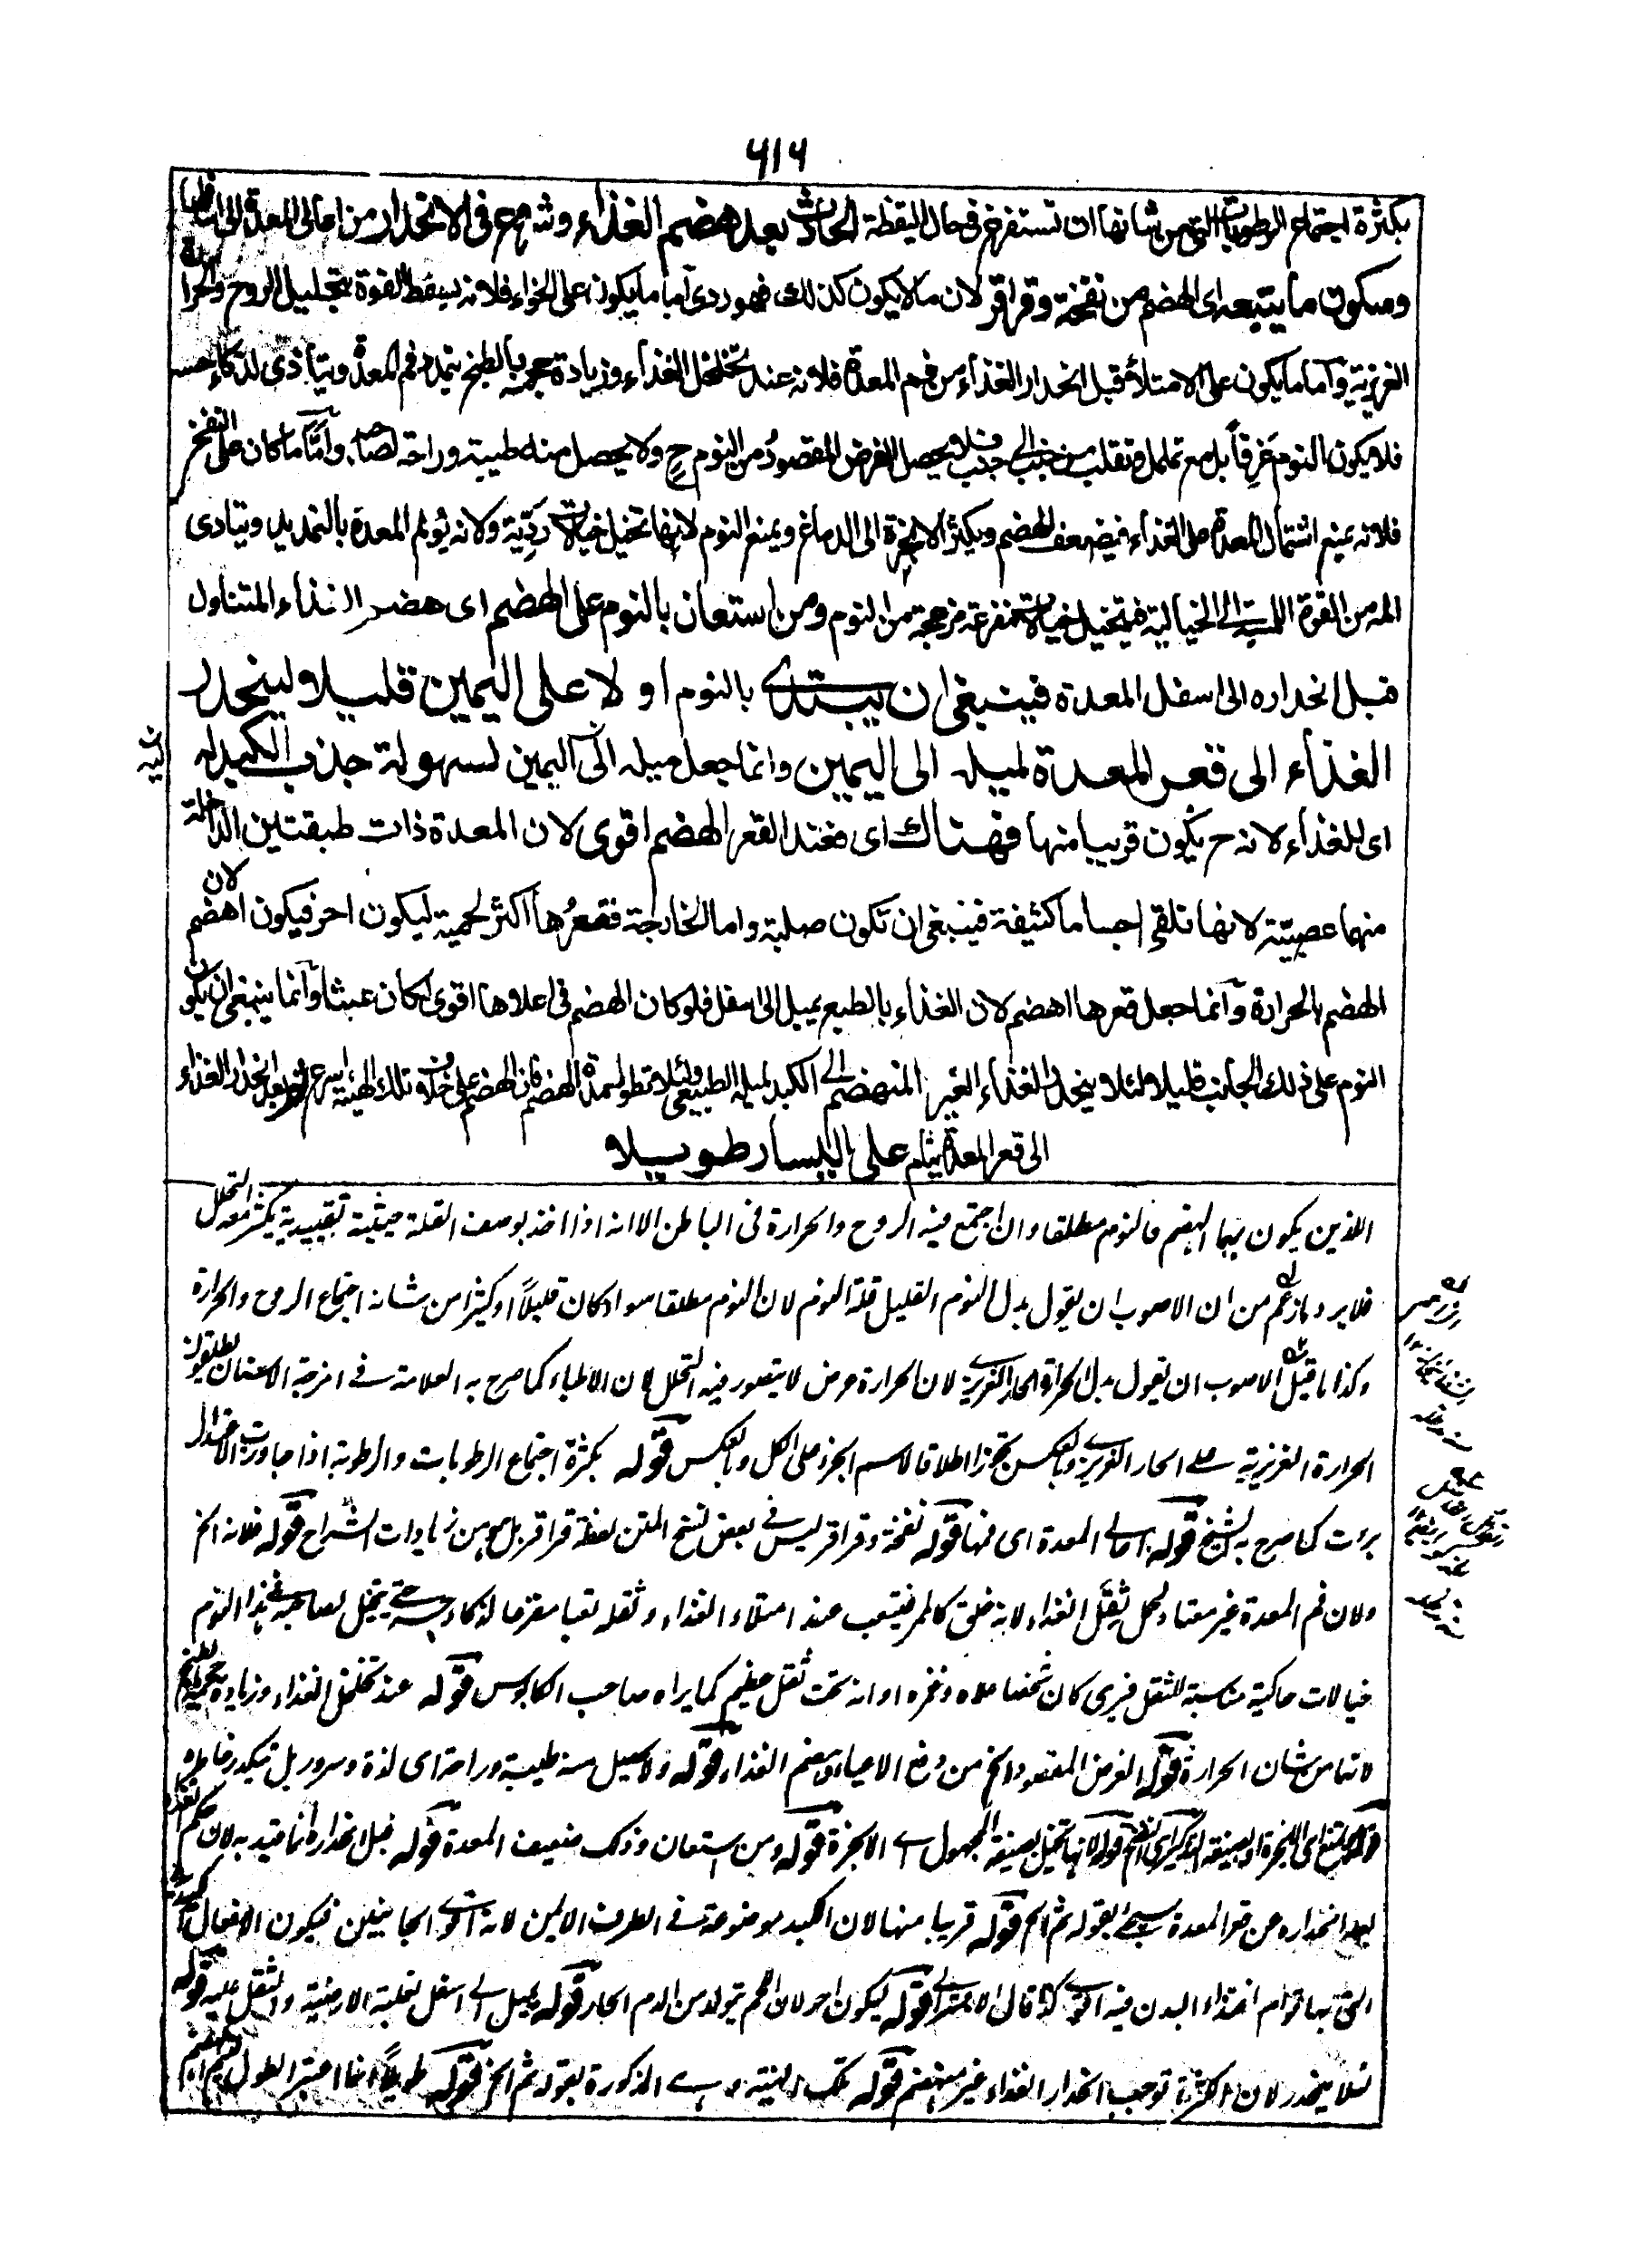 ۶۱۶
بكثرة اجتماع الرطوبات التى من شانها ان تستفرغ فى حال اليقظة الحادث بعد هضم الغذاء وشروع فى الانحدار من اعالى المعدة الى اسافلها
وسكون ما يتبعه اى الهضم من نفخة وقراقر لان ما لا يكون كذلك فهو ردى اما ما يكون على الخواء فلانه يسقط القوة بتحليل الروح والحرارة
الغريزية واما ما يكون على الامتلاء قبل انحدار الغذاء من فم المعدة فلانه عند تخلخل الغذاء وزيادة حجمه بالطبخ يتمدد فم المعدة ويتاذى لذكاء حسه
فلا يكون النوم غرقاً بل مع تململ وتقلب من جنب الى جنب فلا يحصل الغرض المقصود من النوم ح ولا يحصل منه طيبة وراحة لصاحبه واما ما كان على النفخ
فلانه يمنع اشتمال المعدة على الغذاء فيضعف الهضم ويكثر الابخرة الى الدماغ ويمنع النوم لانها تخيل خيالات رديّة ولانه يؤلم المعدة بالتمديد ويتادى
المه من القوة اللمسية الى الخيالية فيتخيل خيالات مفزعة مزعجة من النوم ومن استعان بالنوم على الهضم اى هضم الغذاء المتناول
قبل انحداره الى اسفل المعدة فينبغى ان يبتدى بالنوم اولا على اليمين قليلا ولينحدر
الغذاء الى قعر المعدة لميله الى اليمين وانما جعل ميله الى اليمين لسهولة جذب الكبد له
اى للغذاء لانه ح يكون قريبا منها فهناك اى فعند القعر الهضم اقوى لان المعدة ذات طبقتين الداخلة
منها عصبيّة لانها تلقى اجساما كثيفة فينبغى ان تكون صلبة واما الخارجة فقعرها اكثر لحمية ليكون احر فيكون اهضم لان
الهضم بالحرارة وانما جعل قعرها اهضم لان الغذاء بالطبع يميل الى اسفل فلو كان الهضم فى اعلاها اقوى لكان عبثا وانما ينبغى ان يكون
النوم على ذلك الجانب قليلا لئلا ينحدر الغذاء الغير المنهضم الى الكبد لميله الطبيعى ولئلا تطول مدة الهضم فان الهضم على خلاف تلك الهيئة اسرع ثم بعد انحدار الغذاء
الى قعر المعدة ينام على اليسار طويلا
اللذين يكون بهما الهضم فالنوم مطلقا وان اجتمع فيه الروح والحرارة فى الباطن الا انه اذا اخذ بوصف القلة حيثية تقييدية يكثر معه التحلل
فلا يرد ما زعم من ان الاصوب ان يقول بدل النوم القليل قلة النوم لان النوم مطلقا سواء كان قليلاً او كثيرا من شانه اجتماع الروح والحرارة
وكذا ما قيل الاصوب ان يقول بدل الحرارة الحار الغريزى لان الحرارة عرض لا يتصور فيه التحلل لان الاطباء كما صرح به العلامة فى امزجة الاسنان يطلقون
الحرارة الغريزية على الحار الغريزى وبالعكس تجوزا اطلاقا لاسم الجزء على الكل وبالعكس قوله بكثرة اجتماع الرطوبات والرطوبة اذا جاوزت الاعتدال
بردت كما صرح به الشيخ قوله اعالى المعدة اى فمها قوله نفخة وقراقر ليس فى بعض نسخ المتن لفظة قراقر بل هو من زيادات الشراح قوله فلانه الخ
ولان فم المعدة غير معتاد لحمل ثقل الغذاء لانه خلق كالممر فيتعب عند امتلاء الغذاء وثقله تعبا مفرطا لذكاء حسه حتى يتخيل لصاحب هذا النوم
خيالات حاكية مناسبة للثقل فيرى كان شخصا علاه وغمره او انه تحت ثقل عظيم كما يراه صاحب الكابوس قوله عند تخلخل الغذاء وزيادة حجمه بالطبخ
لانها من شان الحرارة قوله الغرض المقصود الخ من دفع الاعياء وهضم الغذاء قوله ولا يحصل منه طيبة وراحة اى لذة وسرور بل تكدر خاطره
لانها تخيل بصيغة المجهول اى الابخرة قوله ومن استعان وذلك ضعيف المعدة قوله قبل انحداره انما قيد به لان حكم
بعد انحداره عن قعر المعدة سيجئ بقوله ثم الخ قوله قريبا منها لان الكبد موضوعة فى الطرف الايمن لانه اقوى الجانبين فيكون الافعال
التى بها قوام اغتذاء البدن فيه اقوى كذا قال قوله ليكون احر لان اللحم يتولد من الدم الحار قوله يميل الى اسفل لغلبة الارضية والثقل عليه قوله
لئلا ينحدر لان الكثرة توجب انحدار الغذاء غير منهضم قوله تلك الهيئة اى المذكورة بقوله ثم الخ قوله طويلاً انما اعتبر الطول